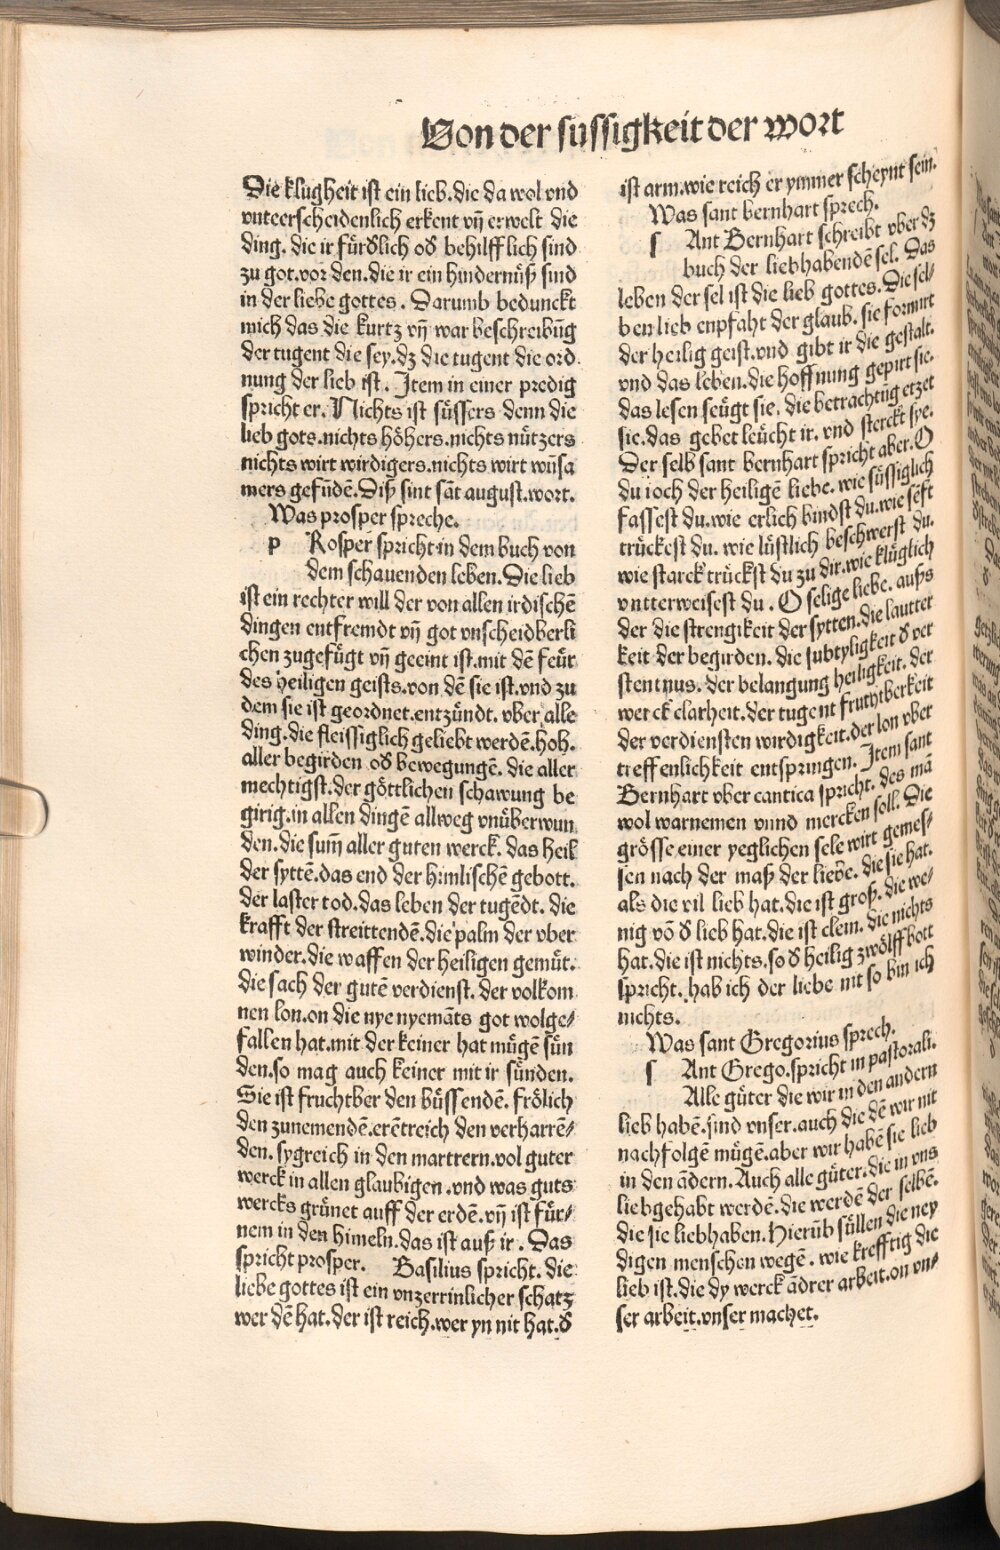 Von der süssigkeit der wort
Die klugheit ist ein lieb. die da wol vnd
vnteerscheidenlich erkent vñ erwelt die
ding. die ir fürdlich od behilfflich sind
zu got. vor den. die ir ein hindernüß sind
in der liebe gottes. Darumb bedunckt
mich das die kurtz vñ war beschreibũg
der tugent die sey. dz die tugent die ord
nung der lieb ist. Item in einer predig
spricht er. Nichts ist süssers denn die
lieb gots. nichts höhers. nichts nützers
nichts wirt wirdigers. nichts wirt wũsa
mers gefũdē. Diß sint sāt august. wort.
Was prosper spreche.
p Rosper spricht in dem buch von
dem schauenden leben. Die lieb
ist ein rechter will der von allen irdischē
dingen entfremdt vñ got vnscheidberli
chen zugefügt vñ geeint ist. mit dē feür
des heiligen geists. von dē sie ist. vnd zu
dem sie ist geordnet. entzündt. vber alle
ding. die fleissiglich geliebt werdē. hoh.
aller begirden od bewegungē. die aller
mechtigst. der göttlichen schawung be
girig. in allen dingē allweg vnüberwun
den. die sum̃ aller guten werck. das heil
der syttē. das end der himlischē gebott.
der laster tod. das leben der tugēdt. die
krafft der streittendē. die palm der vber
winder. die waffen der heiligen gemüt.
die sach der gutē verdienst. der volkom
nen lon. on die nye nyemāts got wolge/
fallen hat. mit der keiner hat mügē sün
den. so mag auch keiner mit ir sünden.
Sie ist fruchtber den büssendē. frölich
den zunemendē. erētreich den verharrē/
den. sygreich in den martrern. vol guter
werck in allen glaubigen. vnd was guts
wercks grünet auff der erdē. vñ ist für/
nem in den himeln. das ist auß ir. Das
spricht prosper. Basilius spricht. die
liebe gottes ist ein vnzerrinlicher schatz
wer dē hat. der ist reich. wer yn nit hat. d
ist arm. wie reich er ymmer scheynt sein.
Was sant bernhart sprech.
s Ant Bernhart schreibt vber dz
buch der liebhabendē sel. Das
leben der sel ist die lieb gottes. Die sel/
ben lieb enpfaht der glaub. sie formirt
der heilig geist. vnd gibt ir die gestalt.
vnd das leben. die hoffnung gepirt sie.
das lesen seügt sie. die betrachtũg etzet
sie. das gebet leücht ir. vnd sterckt sye.
Der selb sant bernhart spricht aber. O
du ioch der heiligē liebe. wie süssiglich
fassest du. wie erlich bindst du. wie senft
trückest du. wie lüstlich beschwerst du.
wie starck trückst du zu dir. wie klüglich
vntterweisest du. O selige liebe. außs
der die strengikeit der sytten. die lautter
keit der begirden. die subtyligkeit d ver
stentnus. der belangung heiligkeit. der
werck clarheit. der tugent fruchtberkeit
der verdiensten wirdigkeit. der lon vber
treffenlichkeit entspringen. Item sant
Bernhart vber cantica spricht. des mā
wol warnemen vnnd mercken soll. Die
grösse einer yeglichen sele wirt gemes/
sen nach der maß der liebe. die sie hat.
als die vil lieb hat. die ist groß. die we/
nig vō d lieb hat. die ist clein. die nichts
hat. die ist nichts. so d heilig zwölffbott
spricht. hab ich der liebe nit so bin ich
nichts.
Was sant Gregorius sprech.
s Ant Grego. spricht in pastorali.
Alle güter die wir in den andern
lieb habē. sind vnser. auch die dē wir nit
nachfolgē mügē. aber wir habē sie lieb
in den ādern. Auch alle güter. die in vns
liebgehabt werdē. die werdē der selbē.
die sie liebhaben. Hierũb süllen die ney
digen menschen wegē. wie krefftig die
lieb ist. die dy werck ādrer arbeit. on vn/
ser arbeit. vnser machet.